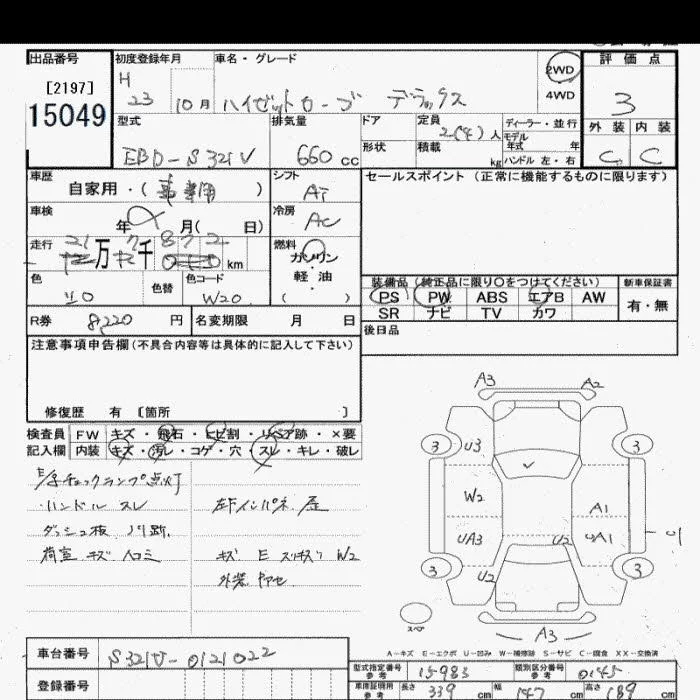 出品番号 初度登録年月 車名・グレード 2WD 評価点
[2197] H 4WD
15049 23 10月 ハイゼットカーゴ デラックス 3
型式 排気量 ドア 定員 2(4)人 ディーラー・並行 外装 内装
モデル 年式 年
EBD-S321V 660cc 形状 積載 kg ハンドル 左・右 C C
車歴 シフト セールスポイント(正常に機能するものに限ります)
自家用・(事業用) AT
車検 冷房
年 月( 日) AC
走行 21万7千872km 燃料 ガソリン
軽油
色 色替 色コード ( ) 装備品(純正品に限り○をつけてください) 新車保証書
W20 PS PW ABS エアB AW 有・無
R券 8,220円 名変期限 月 日 SR ナビ TV カワ
注意事項申告欄(不具合内容等は具体的に記入して下さい) 後日品
修復歴 有 〔箇所 〕
検査員 FW キズ・飛石・ヒビ割・リペア跡・×要
記入欄 内装 キズ・汚レ・コゲ・穴・スレ・キレ・破レ
E/gチェックランプ点灯
・ハンドル スレ 左Fインパネ
ダッシュ板 ノリ跡
荷室 キズ ヘコミ キズ E W2
外装
A3 A2
3 U3 3
W2 A1
UA3 U2 UA1
3 U2 3
スペア A3
A-キズ E-エクボ U-凹み W-補修跡 S-サビ C-腐食 XX-交換済
車台番号 S321V-0121022
型式指定番号 参考 15983 類別区分番号 参考 0145
登録番号 車庫証明用 参考 長さ 339cm 幅 147cm 高さ 189cm